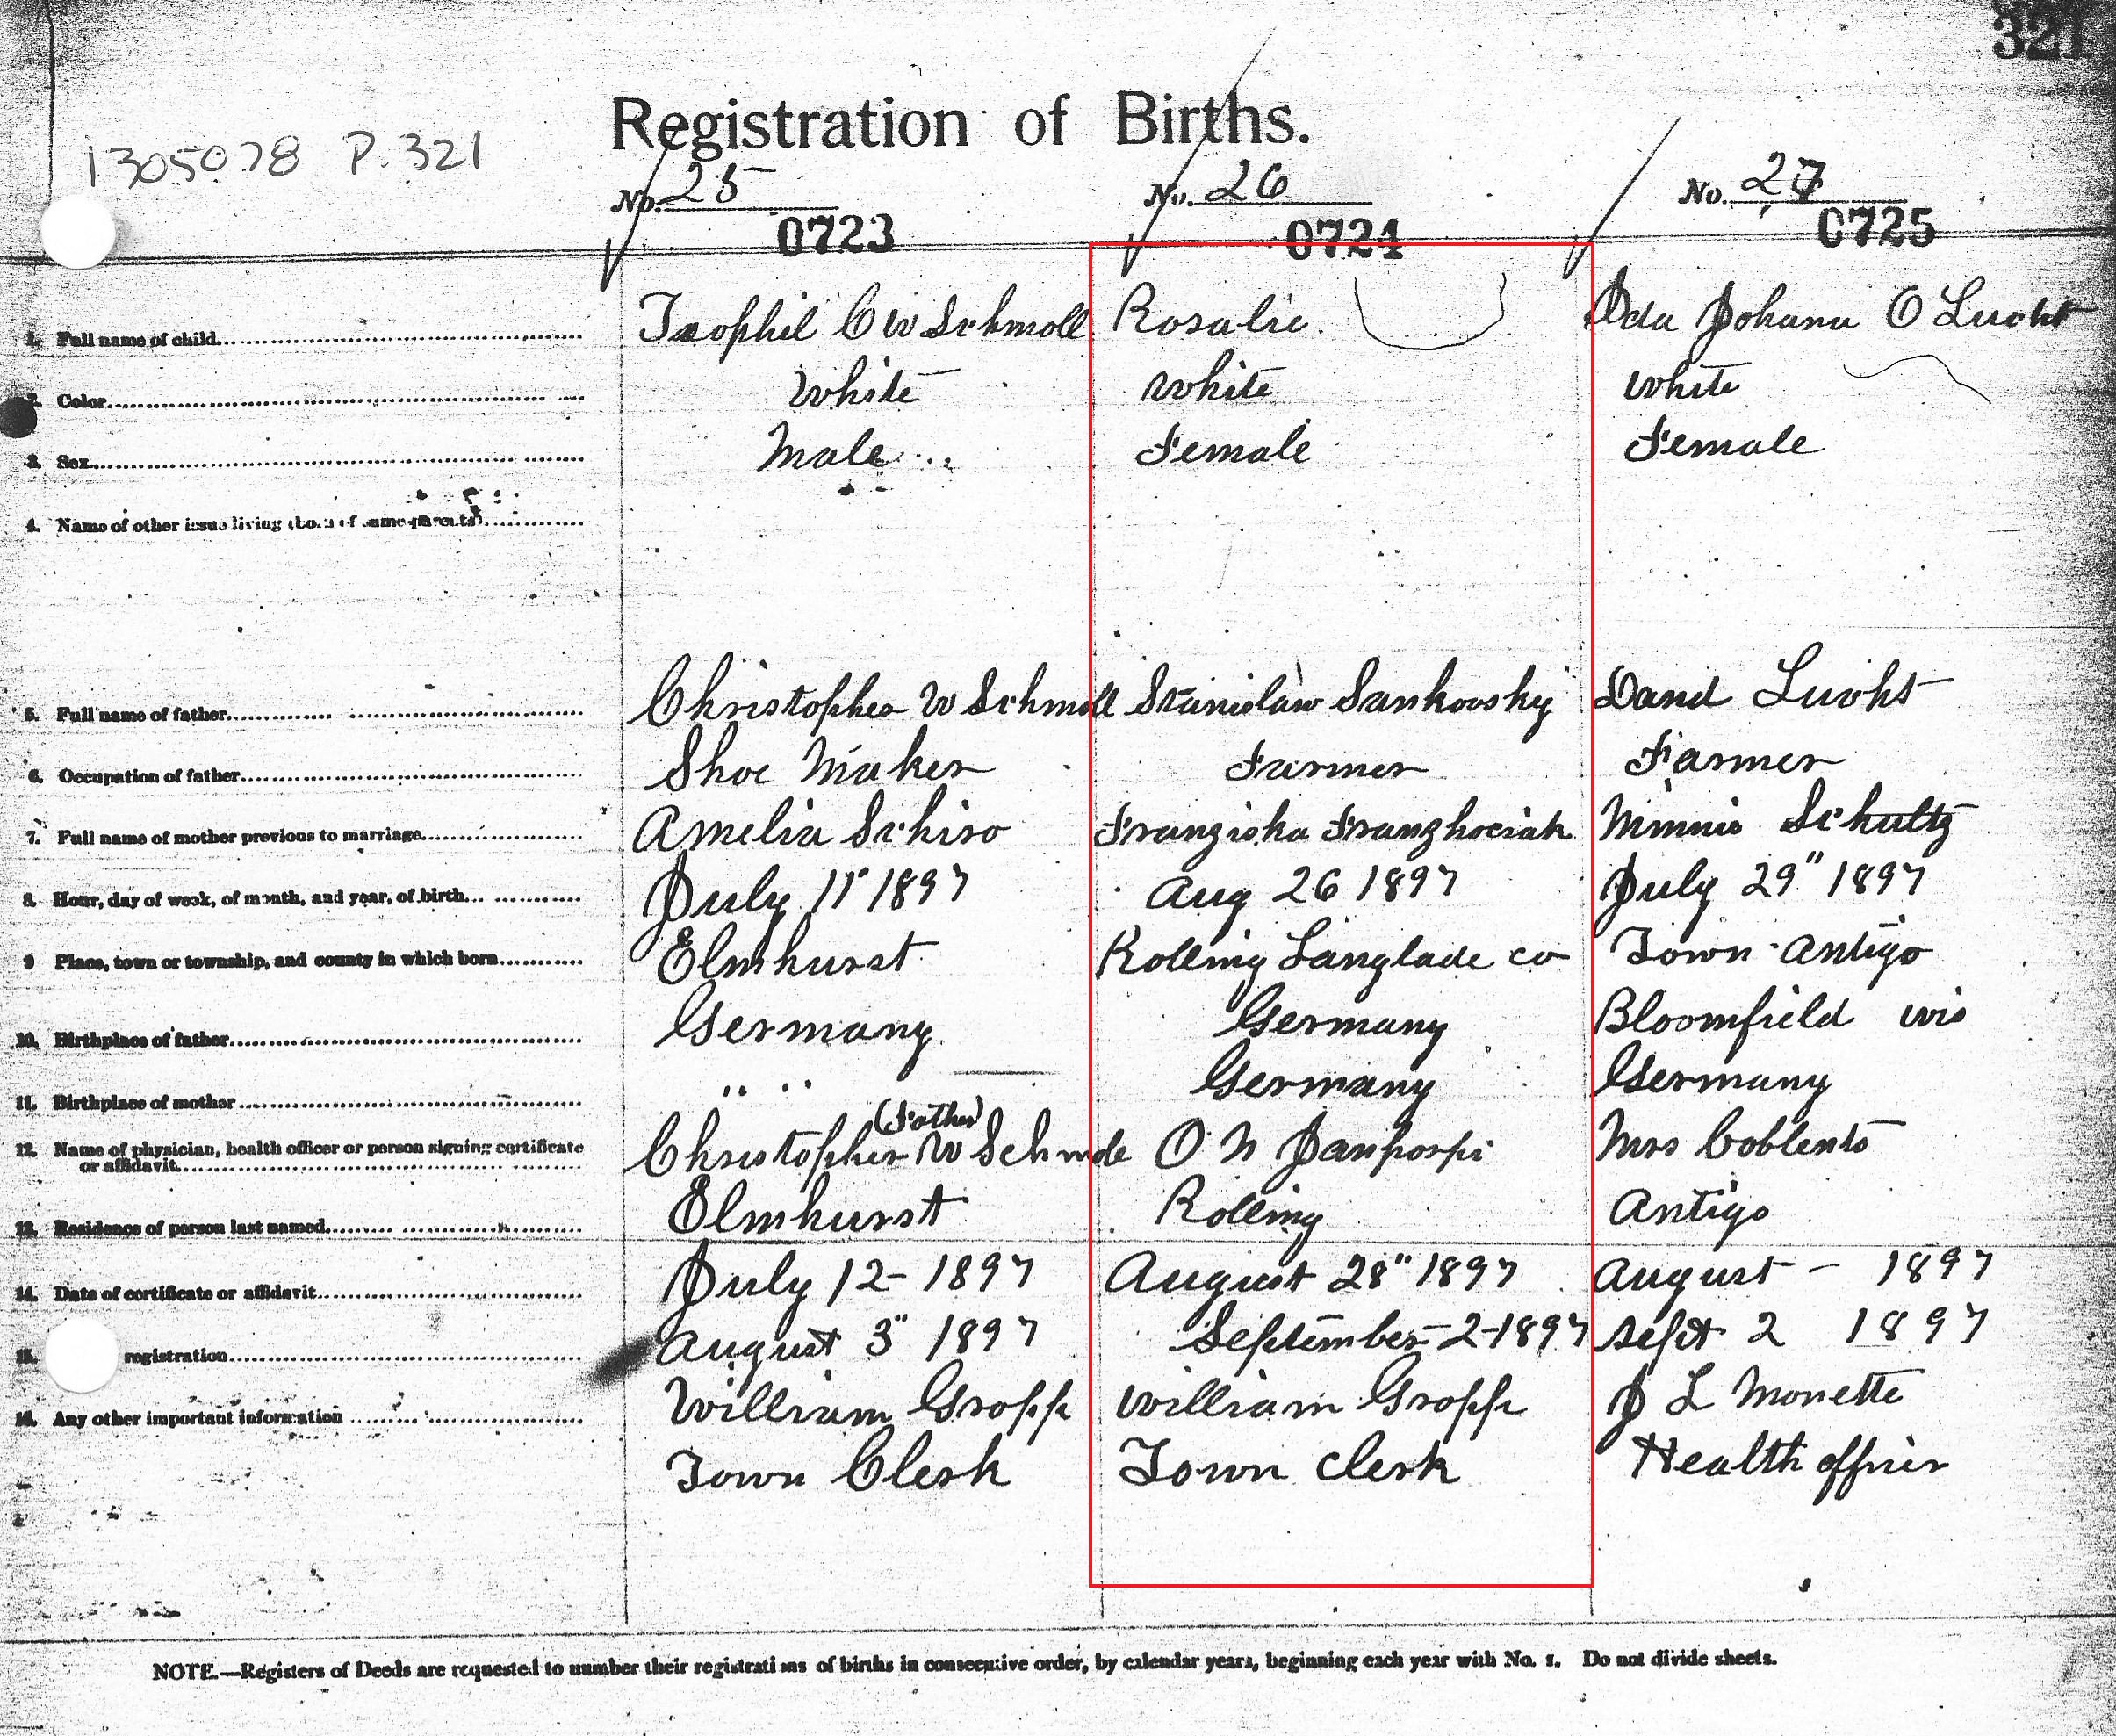 321
Registration of Births.
1305078 P. 321
No. 25 No. 26 No. 27
0723 0724 0725
1. Full name of child Teophil C W Schmoll Rosalie. Ida Johana O Lucht
2. Color White White White
3. Sex Male Female Female
4. Name of other issue living (born of same parents)
5. Full name of father Christopher W Schmoll Stanislaw Sankovsky David Lucht
6. Occupation of father Shoe Maker Farmer Farmer
7. Full name of mother previous to marriage Amelia Schiro Franziska Franzkociak Minnie Schultz
8. Hour, day of week, of month, and year, of birth July 11" 1897 Aug 26 1897 July 29" 1897
9 Place, town or township, and county in which born Elmhurst Rolling Langlade co Town Antigo
10. Birthplace of father Germany Germany Bloomfield wis
11. Birthplace of mother " " Germany Germany
(Father)
12. Name of physician, health officer or person signing certificate
or affidavit Christopher W Schmole O N Janpospi Mrs Coblents
13. Residence of person last named Elmhurst Rolling Antigo
14. Date of certificate or affidavit July 12- 1897 August 28" 1897 August - 1897
15. registration August 3" 1897 September-2-1897 Sept 2 1897
16. Any other important information William Gropp William Gropp J L Monette
Town Clerk Town Clerk Health officer
NOTE.—Registers of Deeds are requested to number their registrations of births in consecutive order, by calendar years, beginning each year with No. 1. Do not divide sheets.